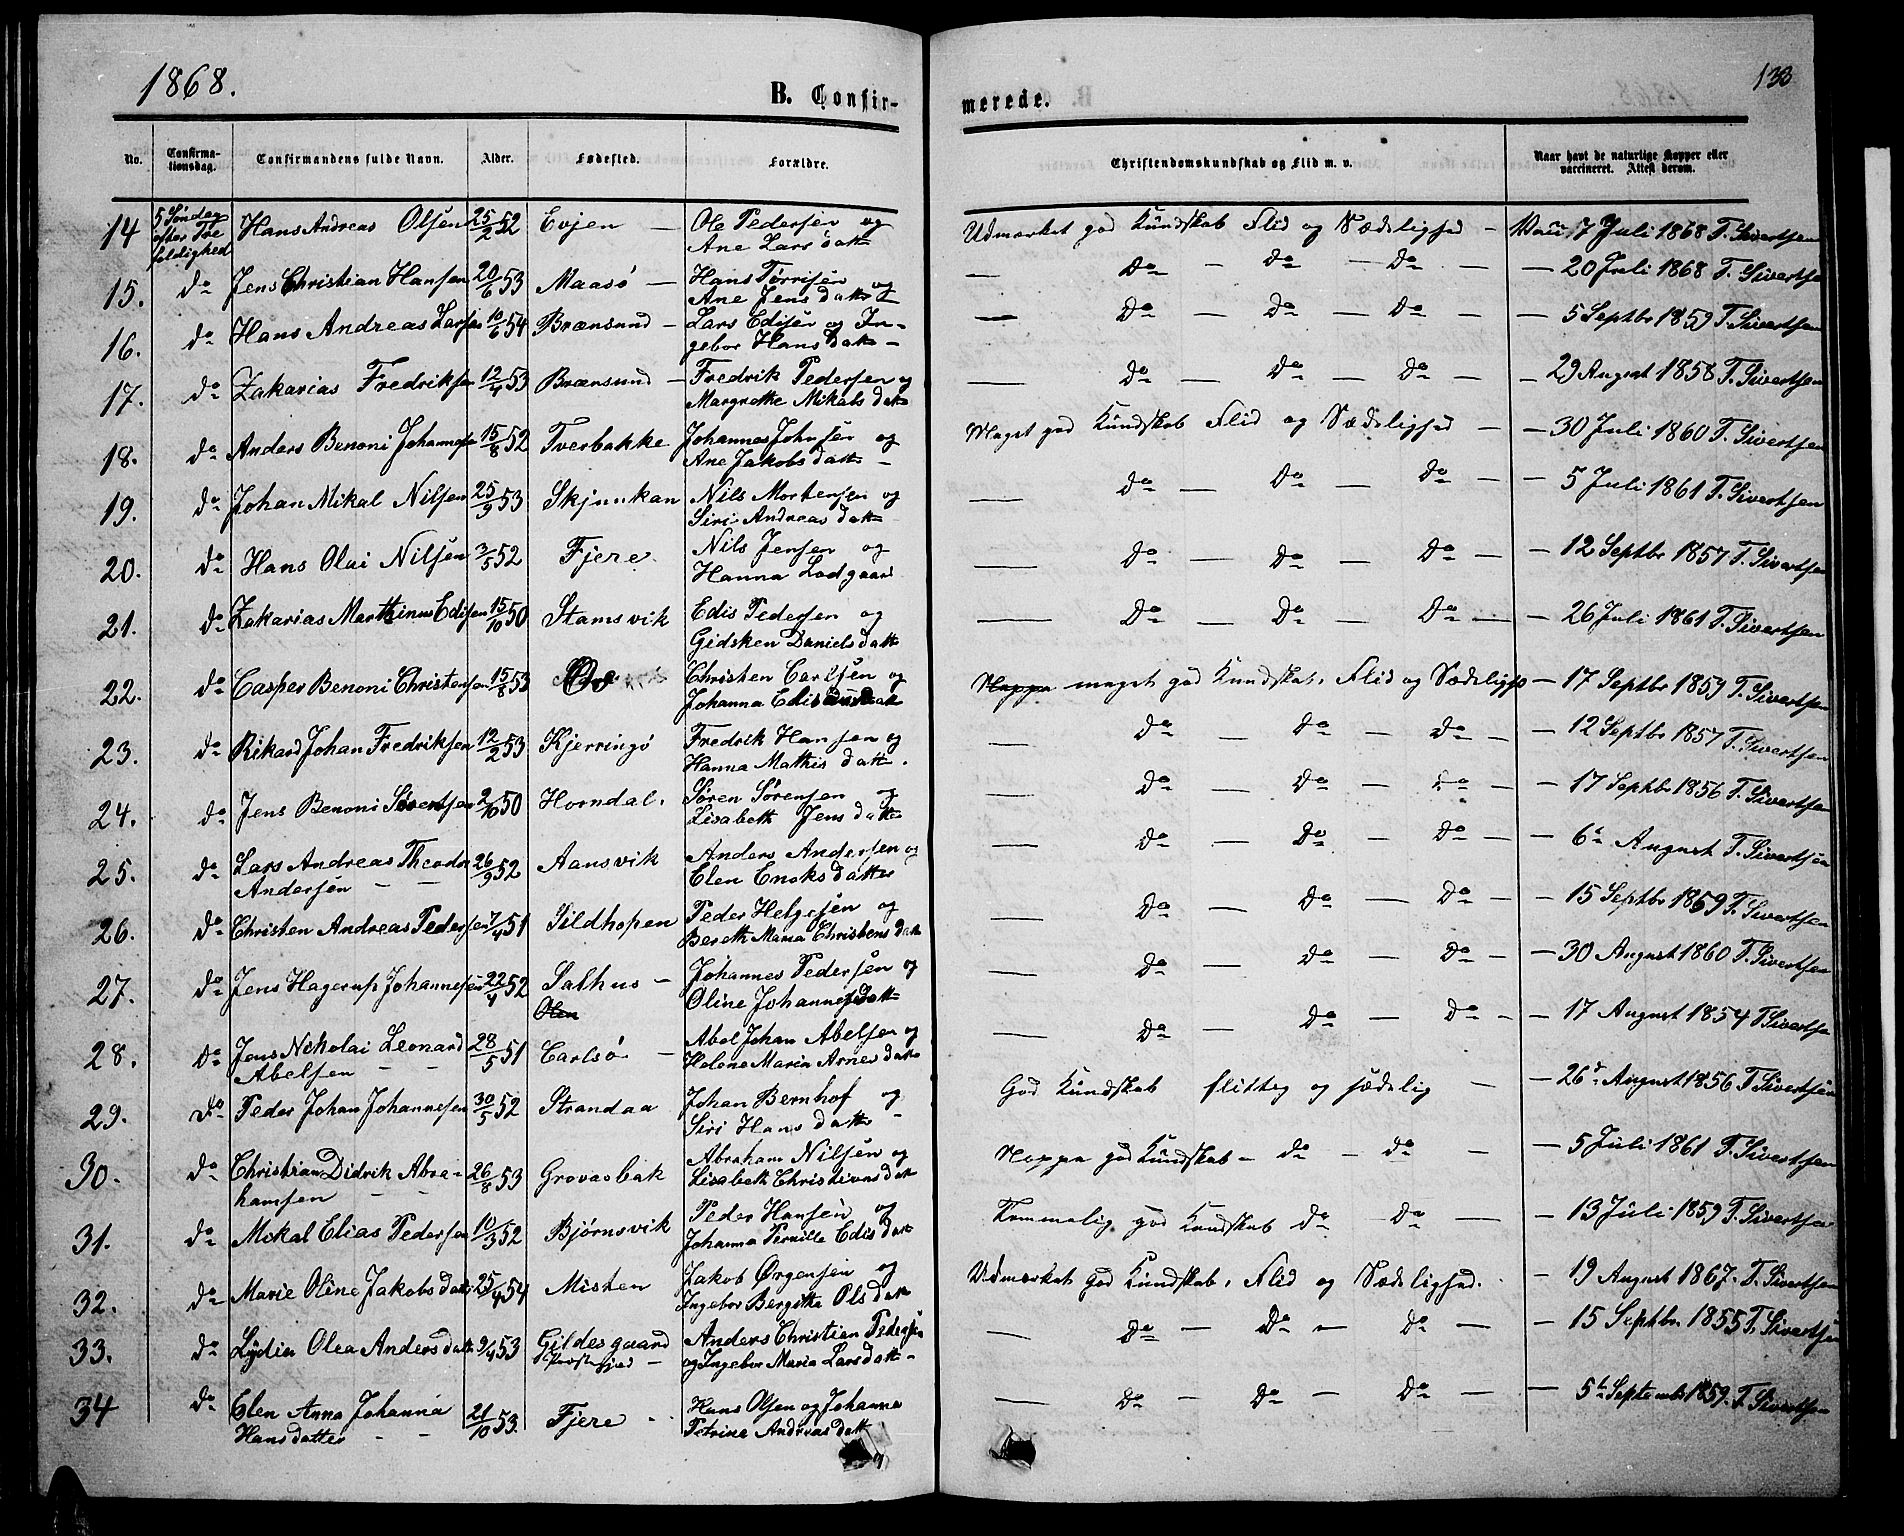 1868.
B. Confir-
merede.
132
No. Confirmationsdag. Confirmandens fulde Navn. Alder. Fødested. Forældre. Christendomskundskab og Flid m. v. Naar havt de naturlige Kopper eller vaccineret. Attest derom.
14 5 Søndag efter Trefoldighed Hans Andreas Olsen 25/2 52 Evjen — Ole Pedersen og Ane Larsdatt Udmærket god Kundskab Flid og Sædelighed — Vacc 7 Juli 1868 T. Sivertsen
15. do Jens Christian Hansen 20/6 53 Maasø — Hans Tørrisen og Ane Jensdatt — do — do — do — 20 Juli 1868 T. Sivertsen
16. do Hans Andreas Larsen 10/6 54 Brænsund — Lars Edisen og Ingebor Hansdatt — — do — do — do — 5 Septbr 1859 T. Sivertsen
17. do Zakarias Fredriksen 12/4 53 Brænsund — Fredrik Pedersen og Margrethe Mikalsdatt — do — do — do — 29 August 1858 T. Sivertsen
18. do Anders Benoni Johannesen 15/8 52 Tverbakke Johannes Johnsen og Ane Jakobsdatt — Meget god Kundskab Flid og Sædelighed — 30 Juli 1860 T. Sivertsen
19. do Johan Mikal Nilsen 25/9 53 Skjunkan Nils Mortensen og Siri Andreasdatt — do — do — do — 5 Juli 1861 T. Sivertsen
20. do Hans Olai Nilsen 3/5 52 Fjere. Nils Jensen og Hanna Lodgaard — do — do — do — 12 Septbr 1857 T. Sivertsen
21. do Zakarias Marthinus Edisen 15/10 50 Stamsvik Edis Pedersen og Gidsken Danielsdatt — do — do — do — 26 Juli 1861 T. Sivertsen
22. do Casper Benoni Christensen 15/8 53 Christen Carlsen og Johanna Edisdatt Noppe meget god Kundskab, Flid og Sædelighed — 17 Septbr 1859 T. Sivertsen
23. do Rikard Johan Fredriksen 12/2 53 Kjerringø Fredrik Hansen og Hanna Mathisdatt. — do — do — do — 12 Septbr 1857 T. Sivertsen
24. do Jens Benoni Sørensen 2/10 50 Horndal. Søren Sørensen og Lisabeth Jensdatt — do — do — do — 17 Septbr 1856 T. Sivertsen
25. do Lars Andreas Theodor Andersen — — 26/9 52 Aansvik Anders Andersen og Elen Enoksdatter — do — do — do — 6te August T. Sivertsen
26. do Christen Andreas Pedersen 7/4 51 Sildhopen Peder Helgesen og Bereth Maria Christensdatt — do — do — do — 15 Septbr 1859 T. Sivertsen
27. do Jens Hagerup Johannesen 22/4 52 Salhus — Olen Johannes Pedersen og Oline Johannesdatt — do — do — do — 30 August 1860 T. Sivertsen
28. do Jens Nikolai Leonard Abelsen — — 28/5 51 Carlsø — Abel Johan Abelsen og Helene Maria Arnesdatt — do — do — do — 17 August 1854 T Sivertsen
29. do Peder Johan Johannesen 30/5 52 Strandaa Johan Bernhof og Siri Hansdatt — God Kundskab flittig og sædelig — 26de August 1856 T Sivertsen
30. do Christian Didrik Abrahamsen — — 26/8 53 Grovasbak Abraham Nilsen og Lisabeth Christiansdatt Noppe god Kundskab — do — do — 5 Juli 1861 T. Sivertsen
31. do Mikal Elias Pedersen 10/3 52 Bjørnsvik Peder Hansen og Johanna Pernille Edisdatt Temmelig god Kundskab do — do — 13 Juli 1859 T. Sivertsen
32. do Marie Oline Jakobsdatt 25/4 54 Misten Jakob Ørgensen og Ingebor Bergitha Olsdatt Udmærket god Kundskab, Flid og Sædelighed. — 19 August 1867. T. Sivertsen
33. do Lydia Olea Andersdatt 9/4 53 Gildesgaard Præstegjæld — Anders Christian Pedersen og Ingebor Maria Larsdatt — — do — do — do — 15 Septbr 1855 T. Sivertsen
34 do Elen Anna Johanna Hansdatter — — 21/10 53. Fjere — Hans Olsen og Johanna Petrina Andreasdatt — do — do — do — 5te September 1859. T. Sivertsen